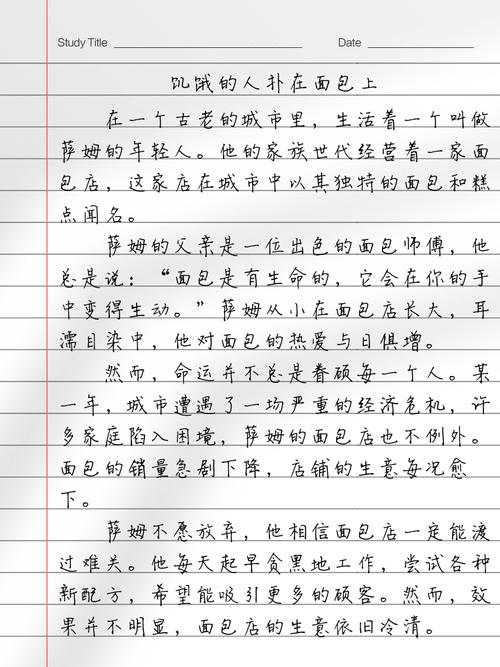 Study Title
Date
饥饿的人扑在面包上
在一个古老的城市里，生活着一个叫做
萨姆的年轻人。他的家族世代经营着一家面
包店，这家店在城市中以其独特的面包和糕
点闻名。
萨姆的父亲是一位出色的面包师傅，他
总是说：“面包是有生命的，它会在你的手
中变得生动。”萨姆从小在面包店长大，耳
濡目染中，他对面包的热爱与日俱增。
然而，命运并不总是眷顾每一个人。某
一年，城市遭遇了一场严重的经济危机，许
多家庭陷入困境，萨姆的面包店也不例外。
面包的销量急剧下降，店铺的生意每况愈
下。
萨姆不愿放弃，他相信面包店一定能渡
过难关。他每天起早贪黑地工作，尝试各种
新配方，希望能吸引更多的顾客。然而，效
果并不明显，面包店的生意依旧冷清。